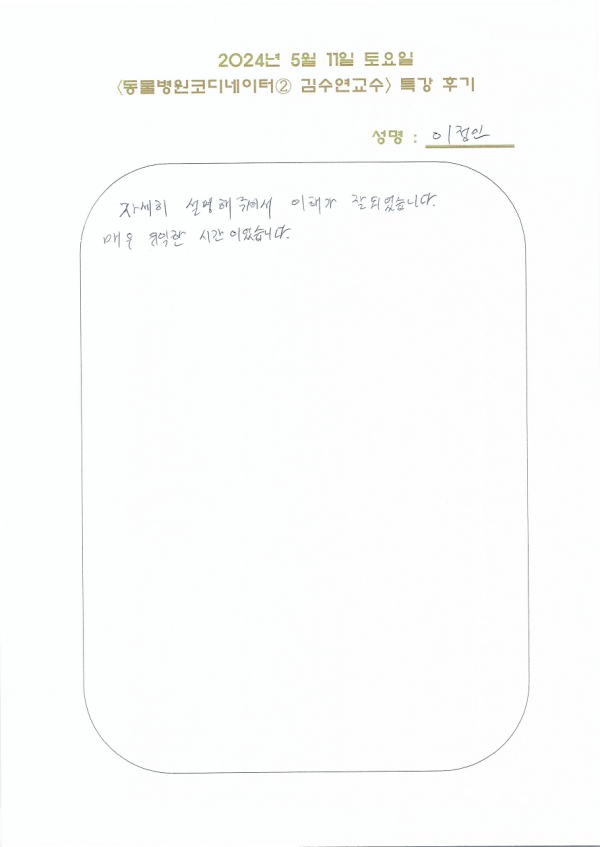 2024년 5월 11일 토요일
<동물병원코디네이터② 김수연교수> 특강 후기
성명 : 이정인
자세히 설명해주셔서 이해가 잘되었습니다.
매우 유익한 시간이었습니다.